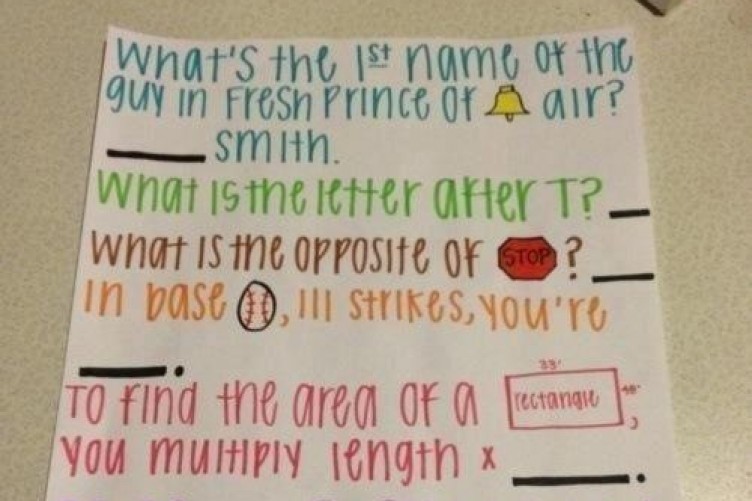 What's the 1st name of the
guy in Fresh Prince of air?
____ smith.
What is the letter after T? __
What is the opposite of STOP ? ___
In base , III strikes, you're
____.
33'
To find the area of a rectangle ,
you multiply length x ____.